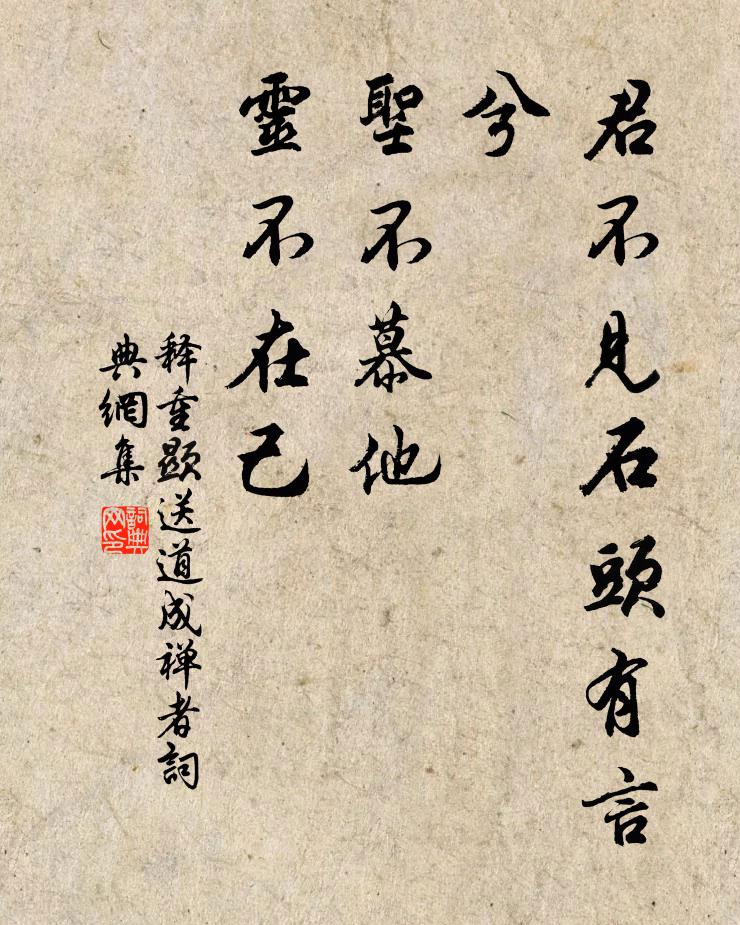 君不見石頭有言
兮
聖不慕他
靈不在己
释重顯送道成禅者詞
典網集
詞典
网印